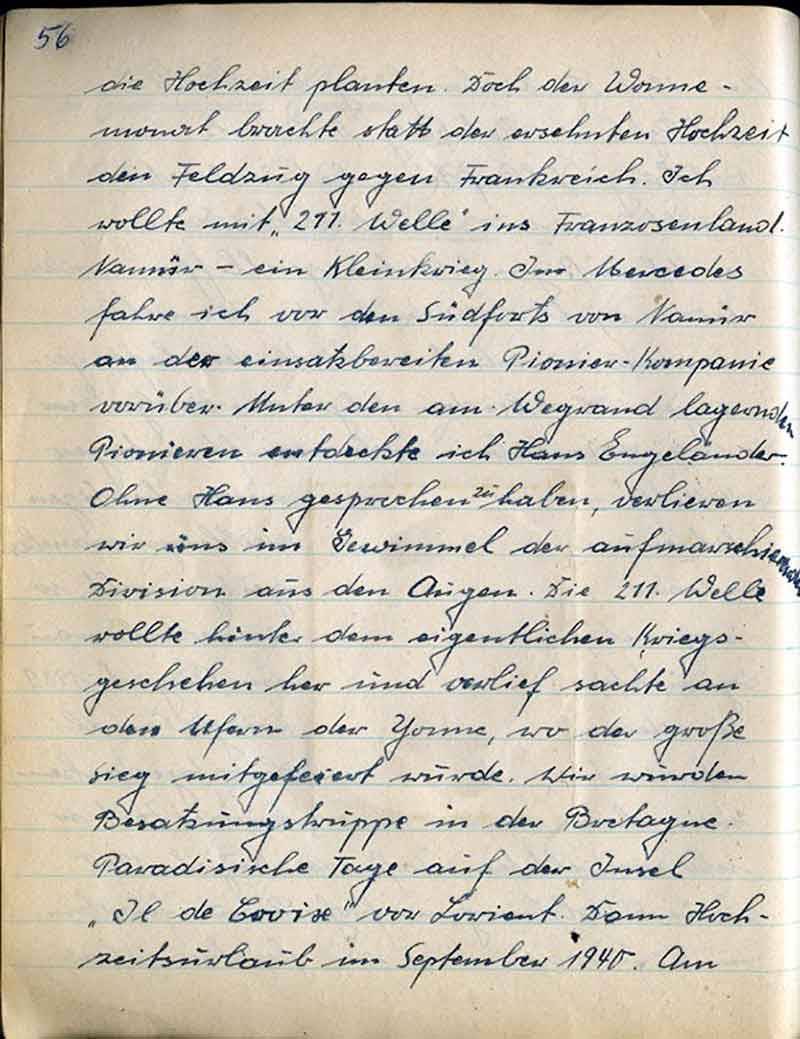 56
die Hochzeit planten. Doch der Wonne-
monat brachte statt der ersehnten Hochzeit
den Feldzug gegen Frankreich. Ich
rollte mit „211. Welle" ins Franzosenland.
Namur – ein Kleinkrieg. Im Mercedes
fahre ich vor den Südforts von Namur
an der einsatzbereiten Pionier-Kompanie
vorüber. Unter den am Wegrand lagernden
Pionieren entdeckte ich Hans Engeländer.
Ohne Hans gesprochen zu haben, verlieren
wir uns im Gewimmel der aufmarschierenden
Division aus den Augen. Die 211. Welle
rollte hinter dem eigentlichen Kriegs-
geschehen her und verlief sachte an
den Ufern der Yonne, wo der große
Sieg mitgefeiert wurde. Wir wurden
Besatzungstruppe in der Bretagne.
Paradisische Tage auf der Insel
„Il de Croix" vor Lorient. Dann Hoch-
zeitsurlaub im September 1940. Am